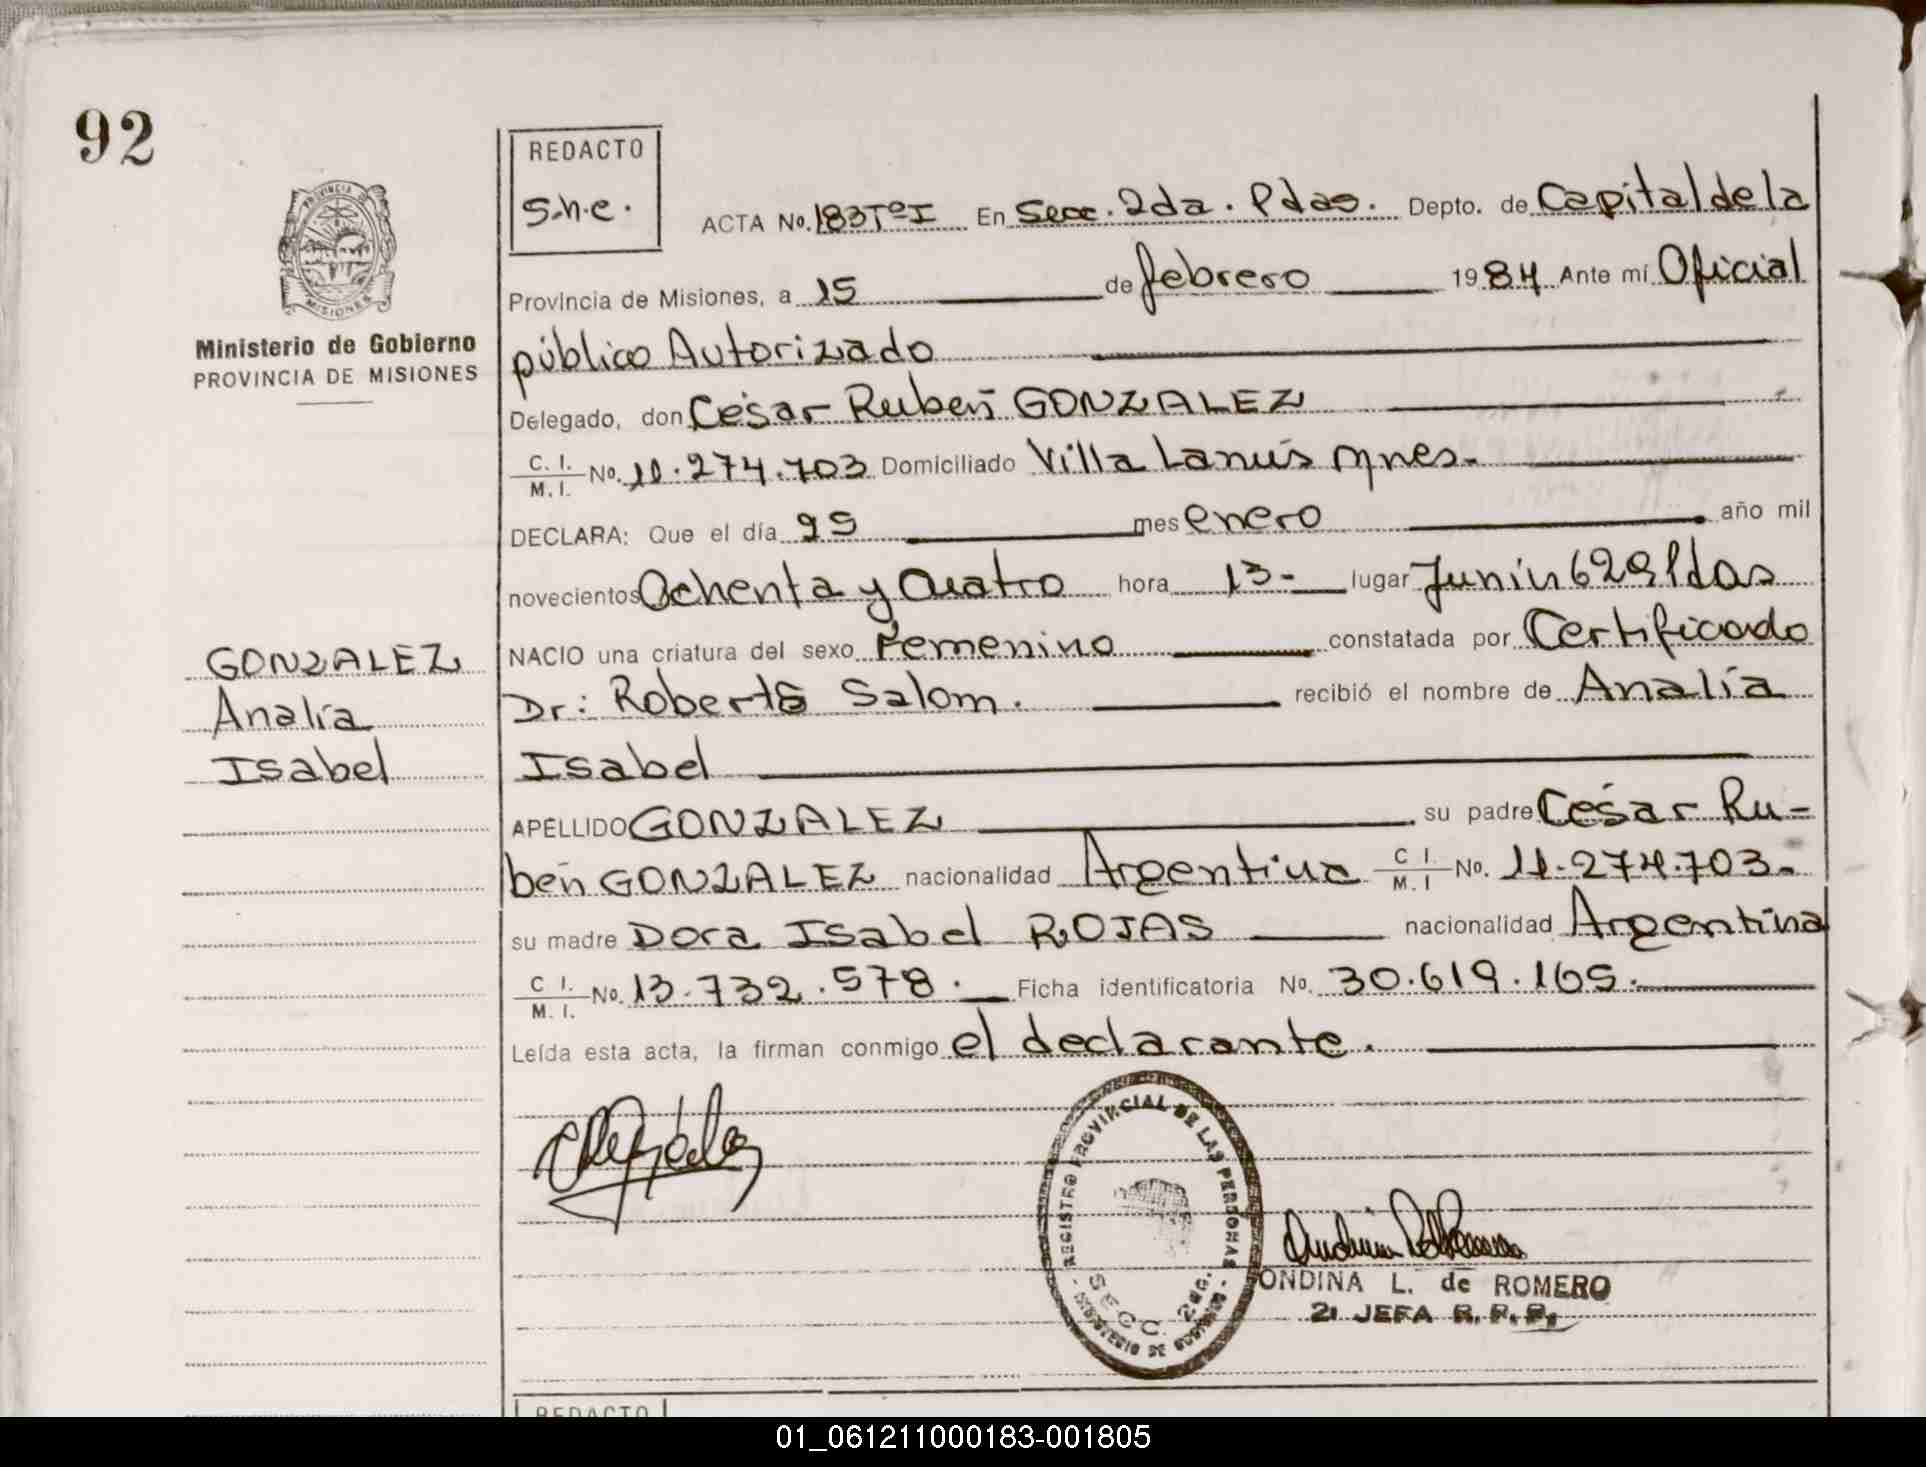 92
REDACTO
S.h.e.
PROVINCIA DE
MISIONES
Ministerio de Gobierno
PROVINCIA DE MISIONES
ACTA No. 183 Tº I En Secc. 2da. Pdas. Depto. de Capital de la
Provincia de Misiones, a 15 de febrero 1984 Ante mí Oficial
público Autorizado
Delegado, don César Rubén GONZALEZ
C. I. / M. I. No. 11.274.703 Domiciliado Villa Lanús Mnes.
DECLARA: Que el día 25 mes enero año mil
novecientos Ochenta y Cuatro hora 13- lugar Junín 629 Pdas
NACIO una criatura del sexo Femenino constatada por Certificado
Dr: Roberto Salom. recibió el nombre de Analía
Isabel
GONZALEZ
Analía
Isabel
APELLIDO GONZALEZ su padre César Ru-
bén GONZALEZ nacionalidad Argentina C. I. / M. I No. 11.274.703-
su madre Dora Isabel ROJAS nacionalidad Argentina
C. I. / M. I. No. 13.732.578. Ficha identificatoria No. 30.619.165.
Leída esta acta, la firman conmigo el declarante.
REGISTRO PROVINCIAL DE LAS PERSONAS
SECC. 2da.
ONDINA L. de ROMERO
2º JEFA R. P. P.
REDACTO
01_061211000183-001805